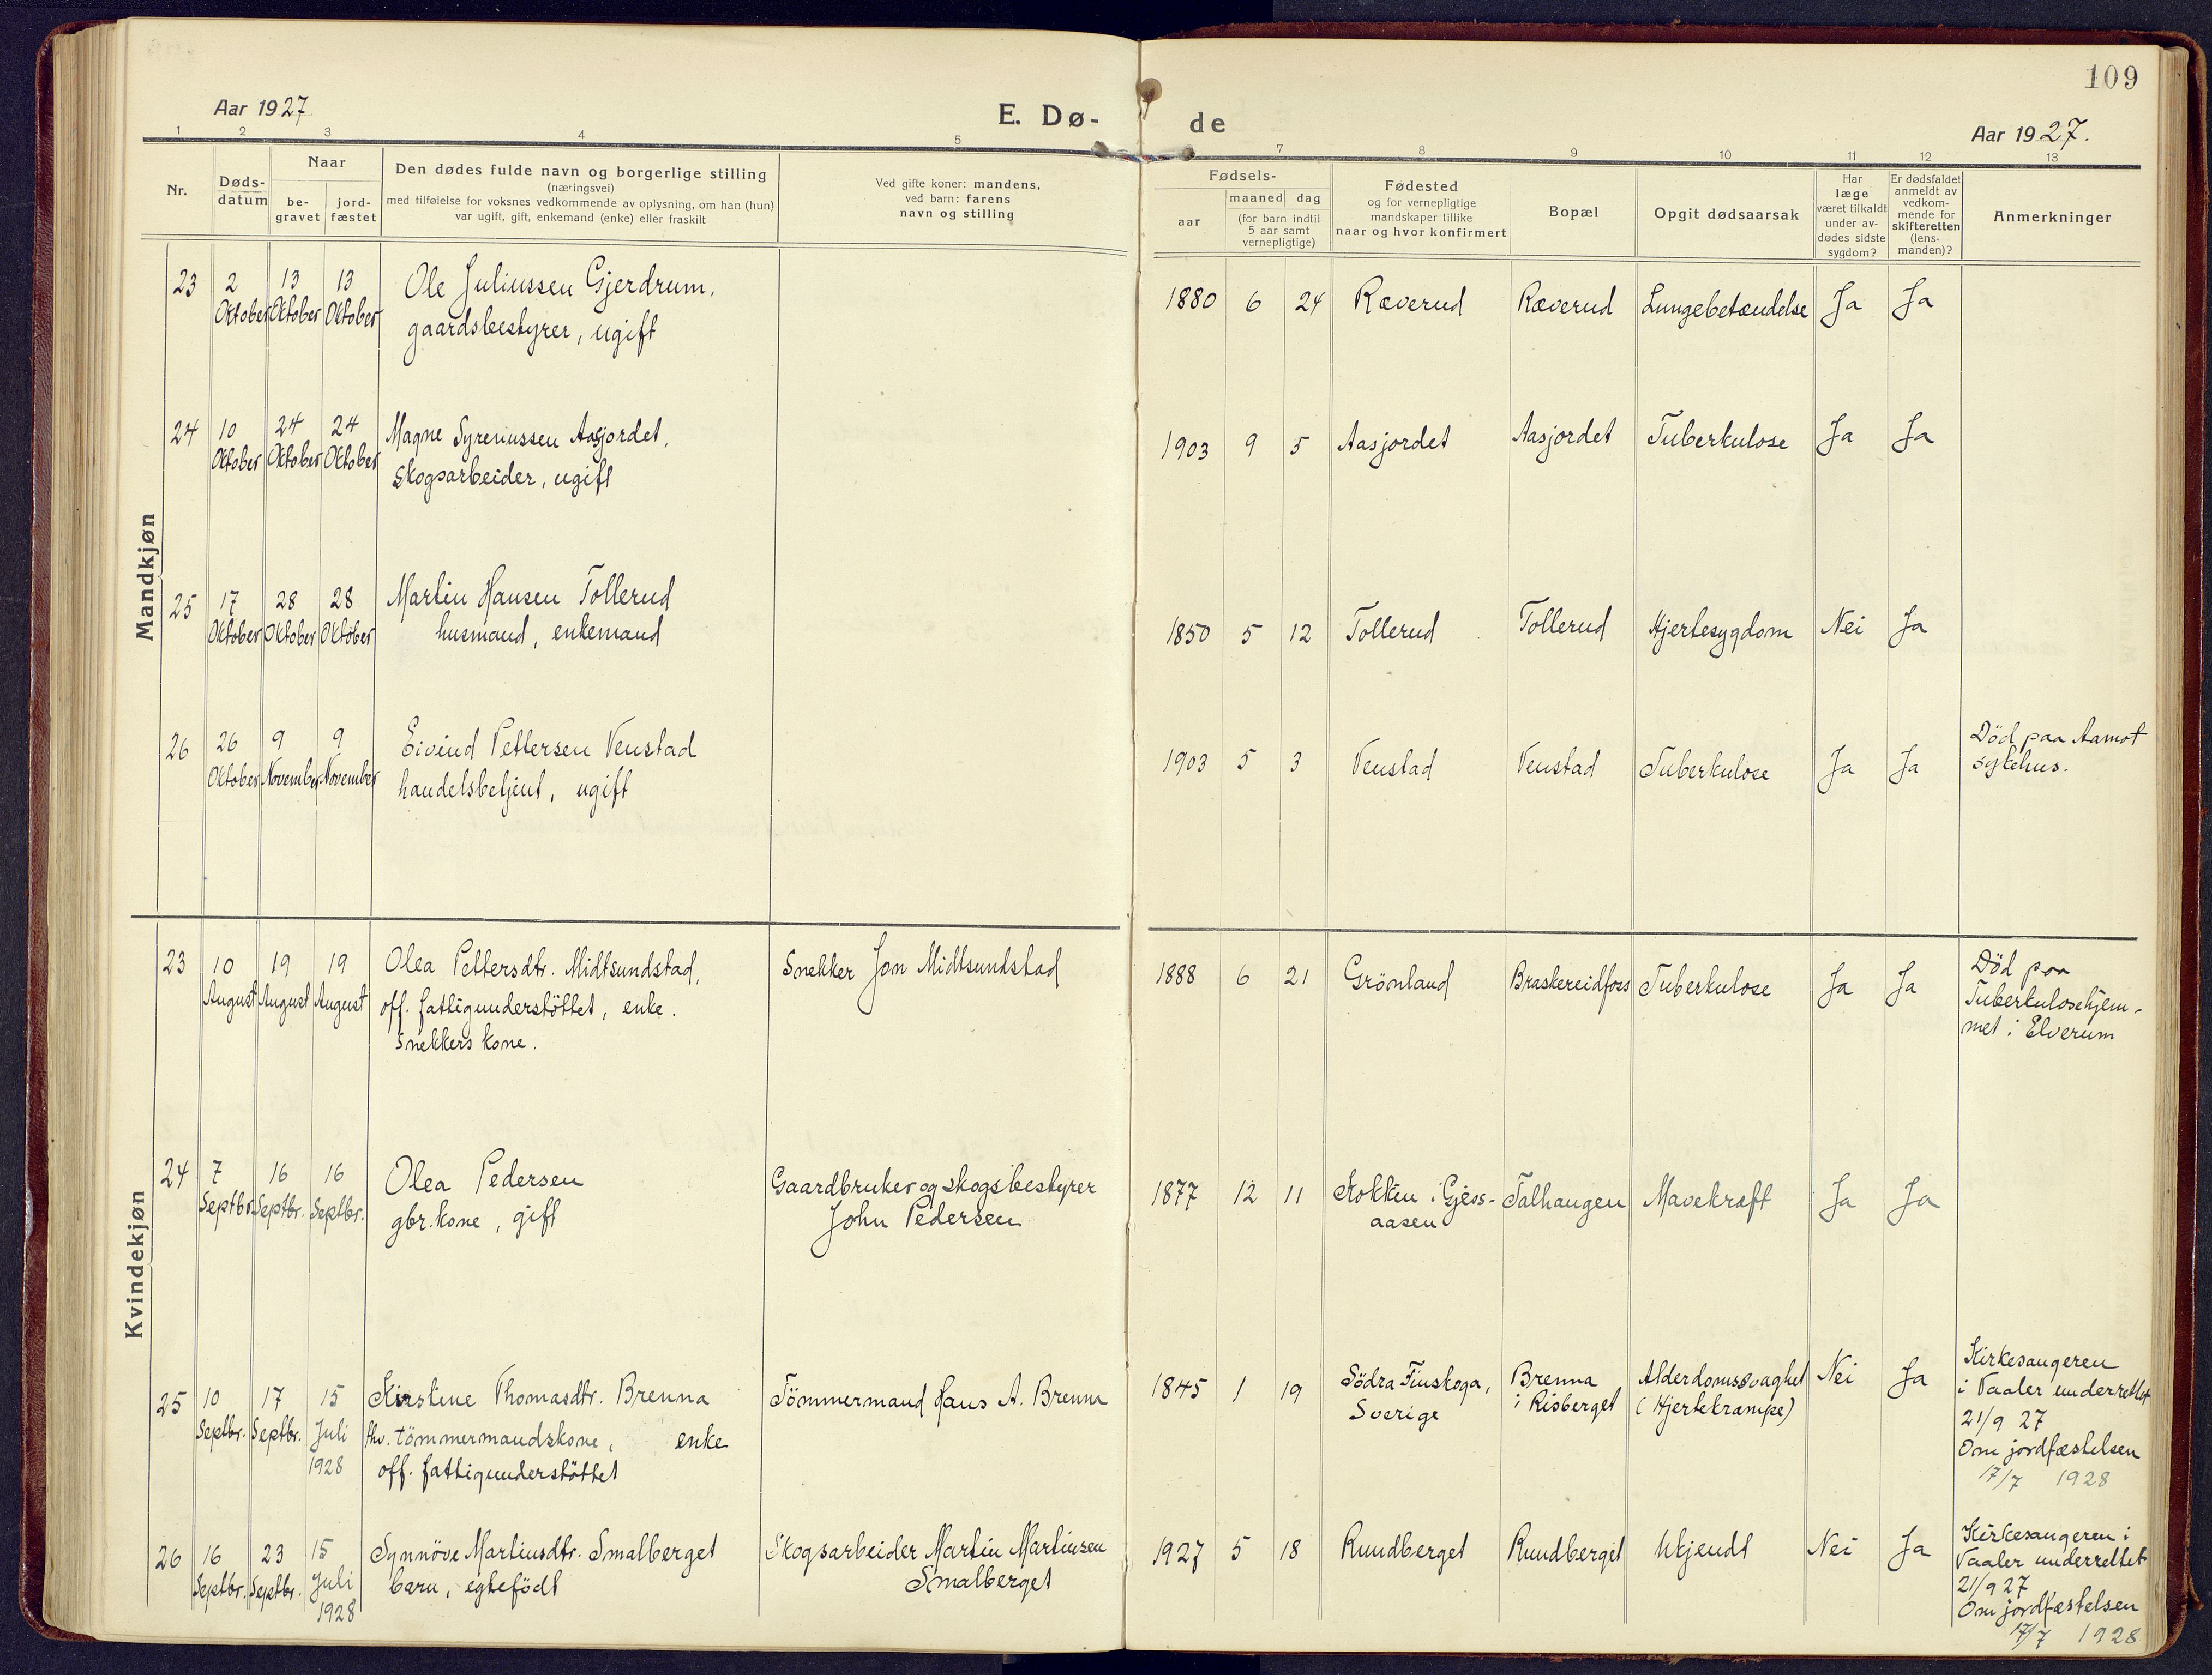 109
Aar 1927
E. Dø-
de
Aar 1927.
1 2 3 4 5 7 8 9 10 11 12 13
Nr.
Døds-
datum
Naar
be-
gravet
jord-
fæstet
Den dødes fulde navn og borgerlige stilling
(næringsvei)
med tilføielse for voksnes vedkommende av oplysning, om han (hun)
var ugift, gift, enkemand (enke) eller fraskilt
Ved gifte koner: mandens,
ved barn: farens
navn og stilling
Fødsels-
aar
maaned dag
(for barn indtil
5 aar samt
vernepligtige)
Fødested
og for vernepligtige
mandskaper tillike
naar og hvor konfirmert
Bopæl
Opgit dødsaarsak
Har
læge
været tilkaldt
under av-
dødes sidste
sygdom?
Er dødsfaldet
anmeldt av
vedkom-
mende for
skifteretten
(lens-
manden)?
Anmerkninger
Mandkjøn
23 2 13 13 Ole Juliussen Gjerdrum, 1880 6 24 Ræverud Ræverud Lungebetændelse Ja Ja
Oktober Oktober Oktober gaardsbestyrer, ugift
24 10 24 24 Magne Syrenussen Aasjordet, 1903 9 5 Aasjordet Aasjordet Tuberkulose Ja Ja
Oktober Oktober Oktober skogsarbeider, ugift
25 17 28 28 Martin Hansen Tollerud 1850 5 12 Tollerud Tollerud Hjertesygdom Nei Ja
Oktober Oktober Oktober husmand, enkemand
26 26 9 9 Eivind Pettersen Venstad 1903 5 3 Venstad Venstad Tuberkulose Ja Ja Död paa Aamot
Oktober November November handelsbetjent, ugift sykehus.
Kvindekjøn
23 10 19 19 Olea Pettersdtr. Midtsundstad, Snekker Jon Midtsundstad 1888 6 21 Grönland Braskereidfoss Tuberkulose Ja Ja Död paa
August August August off. fattigunderstöttet, enke. Tuberkulosehjem-
snekkers kone. met i Elverum
24 7 16 16 Olea Pedersen Gaardbruker og skogsbestyrer 1877 12 11 Stokken i Gjess- Talhaugen Mavekræft Ja Ja
Septbr. Septbr. Septbr. gbr.kone, gift John Pedersen aasen
25 10 17 15 Kirstine Thomasdtr. Brenna Tömmermand Hans A. Brenna 1845 1 19 Södra Finskoga, Brenna Alderdomssvaghet Nei Ja Kirkesangeren
Septbr. Septbr. Juli fhv. tömmermandskone, enke Sverige i Risberget (Hjertekrampe) i Vaaler underrettet
1928 off. fattigunderstöttet 21/9 27
Om jordfæstelsen
17/7 1928
26 16 23 15 Synnöve Martinsdtr. Smalberget Skogsarbeider Martin Martinsen 1927 5 18 Rundberget Rundberget Ukjendt Nei Ja Kirkesangeren i
Septbr. Septbr. Juli barn, egtefödt Smalberget Vaaler underrettet
1928 21/9 27
Om jordfæstelsen
17/7 1928